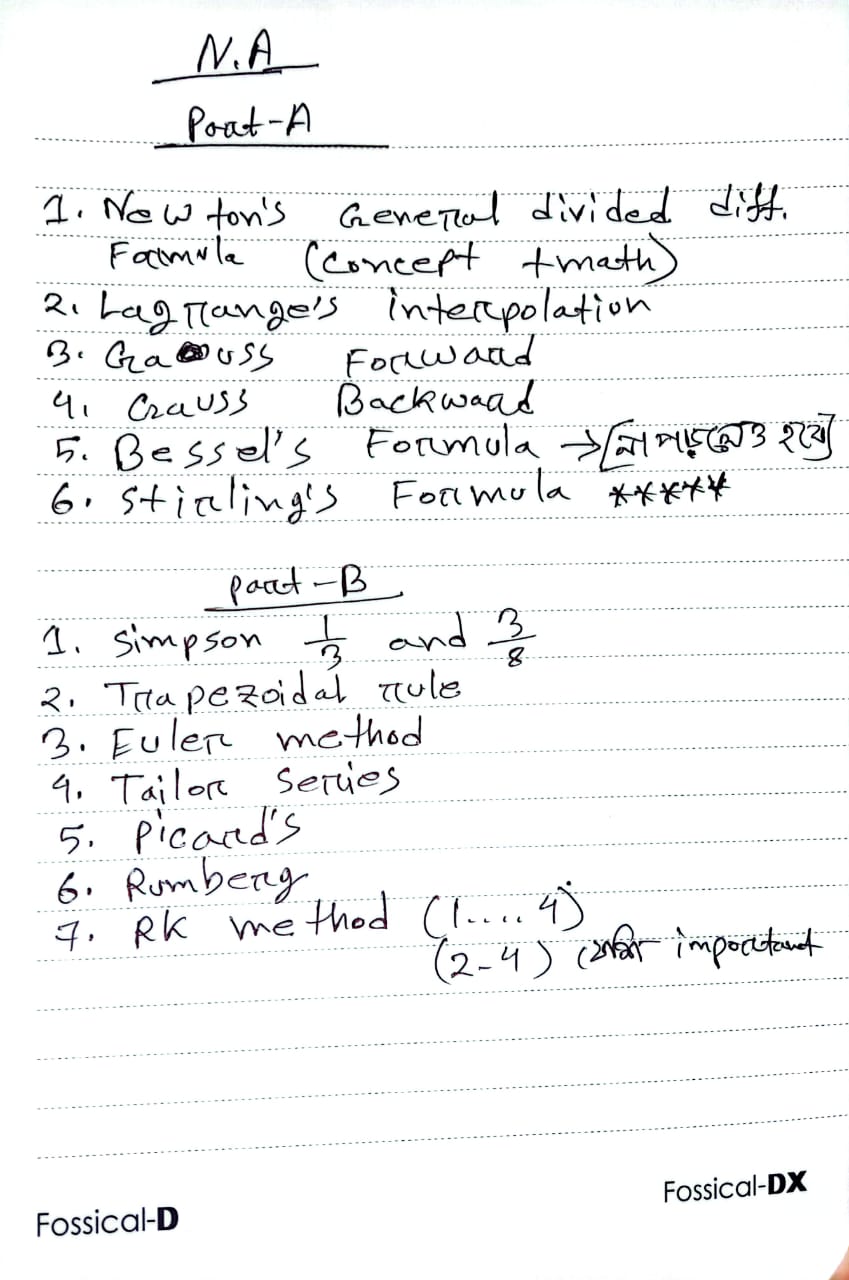 N.A
Part-A
1. Newton's General divided diff.
Formula (concept +math)
2. Lagrange's interpolation
3. Gauss Forward
4. Gauss Backward
5. Bessel's Formula → [না পড়লেও হবে]
6. Stirling's Formula *****
part-B
1. Simpson 1/3 and 3/8
2. Trapezoidal rule
3. Euler method
4. Tailor Series
5. Picard's
6. Rumberg
7. RK method (1.... 4)
(2-4) বেশি important
Fossical-DX
Fossical-D